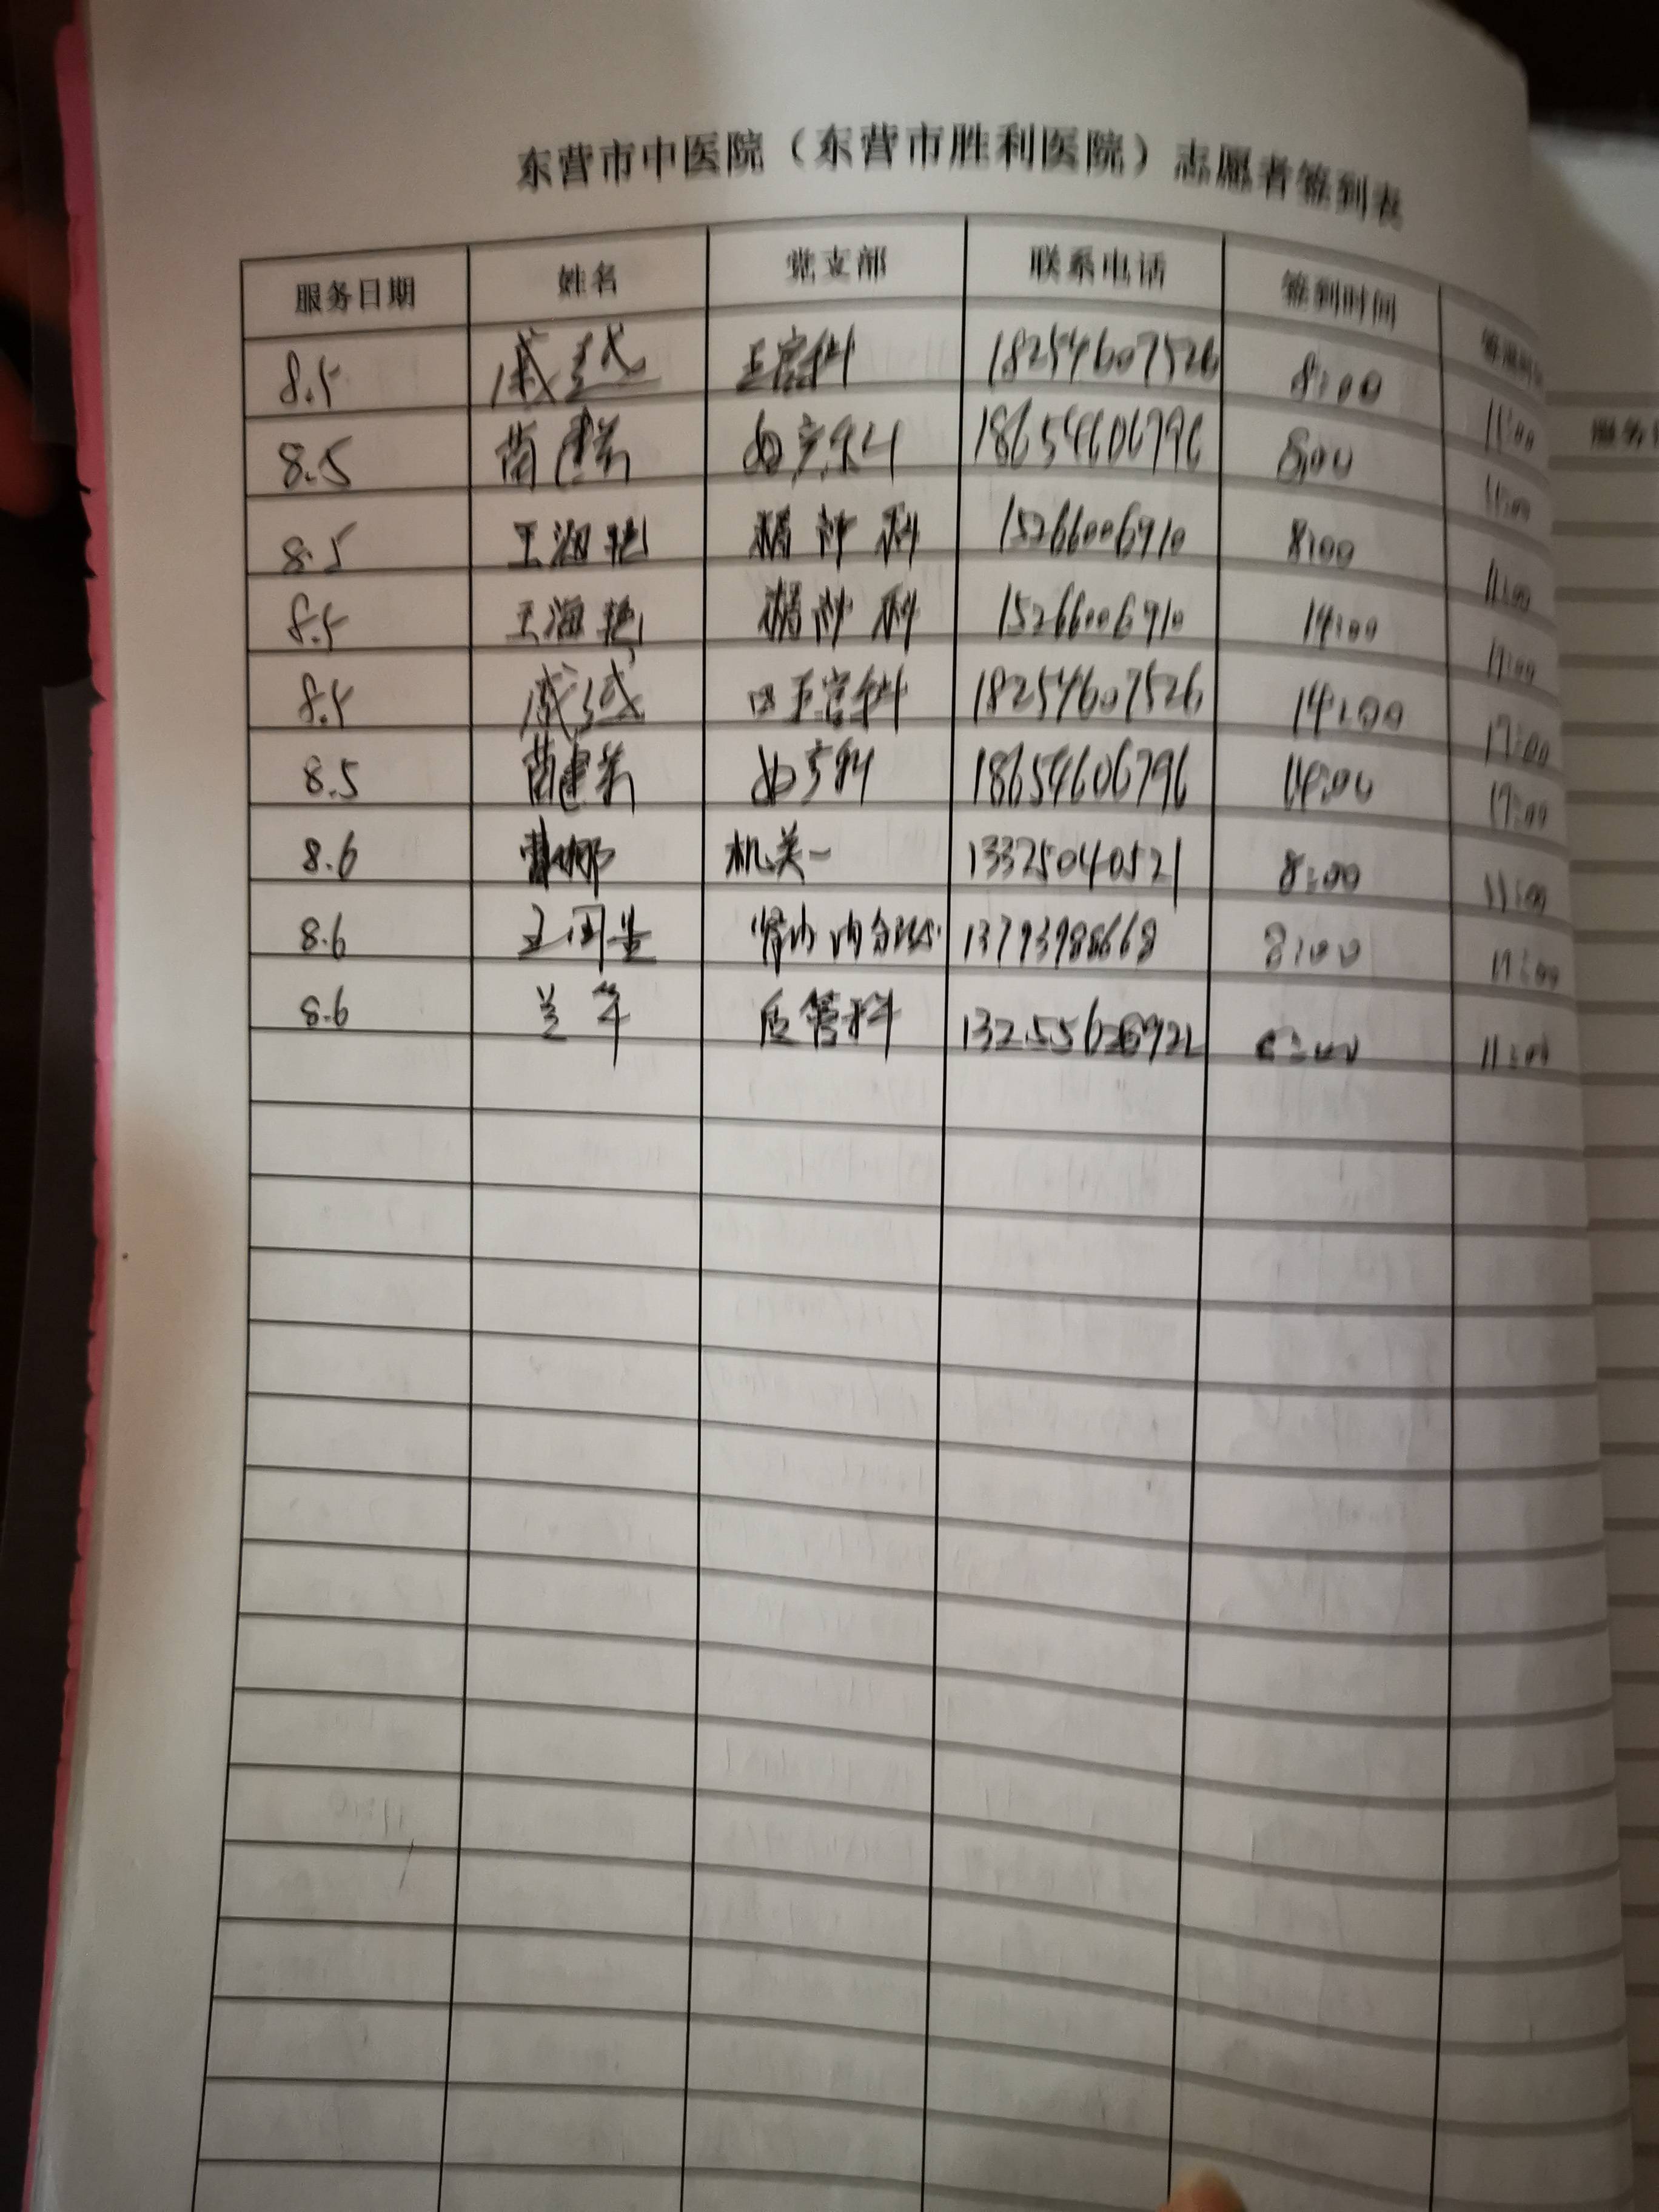 东营市中医院（东营市胜利医院）志愿者签到表
服务日期 姓名 党支部 联系电话 签到时间 签退时间
8.5 18254607526 8:00 11:00
8.5 妇产科 18654606796 8:00 11:00
8.5 王海艳 精神科 15266006910 8:00 11:00
8.5 王海艳 精神科 15266006910 14:00 17:00
8.5 18254607526 14:00 17:00
8.5 妇产科 18654606796 14:00 17:00
8.6 曹娜 机关一 13325040521 8:00 11:00
8.6 肾内内分泌 13793988668 8:00 11:00
8.6 兰军 质管科 11:00
服务